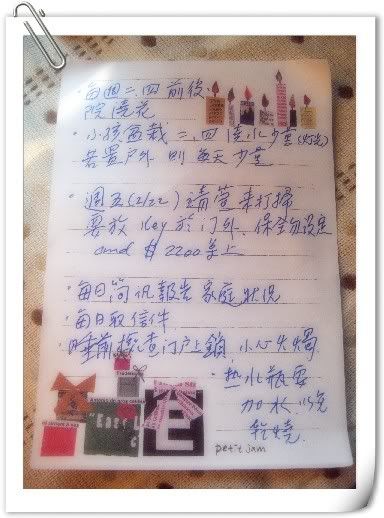 ·每週二、四前後
院澆花
·小孩盆栽二、四澆水少量(灯光)
若置户外 則每天少量
·週五(2/22)請萱來打掃
要放 Key 於门外、保全勿設定
and $ 2200 桌上
·每日简讯報告 家庭狀况
·每日取信件
·睡前檢查门户上鎖,小心火燭
·热水瓶要
加水,以免
乾燒.
petit jam